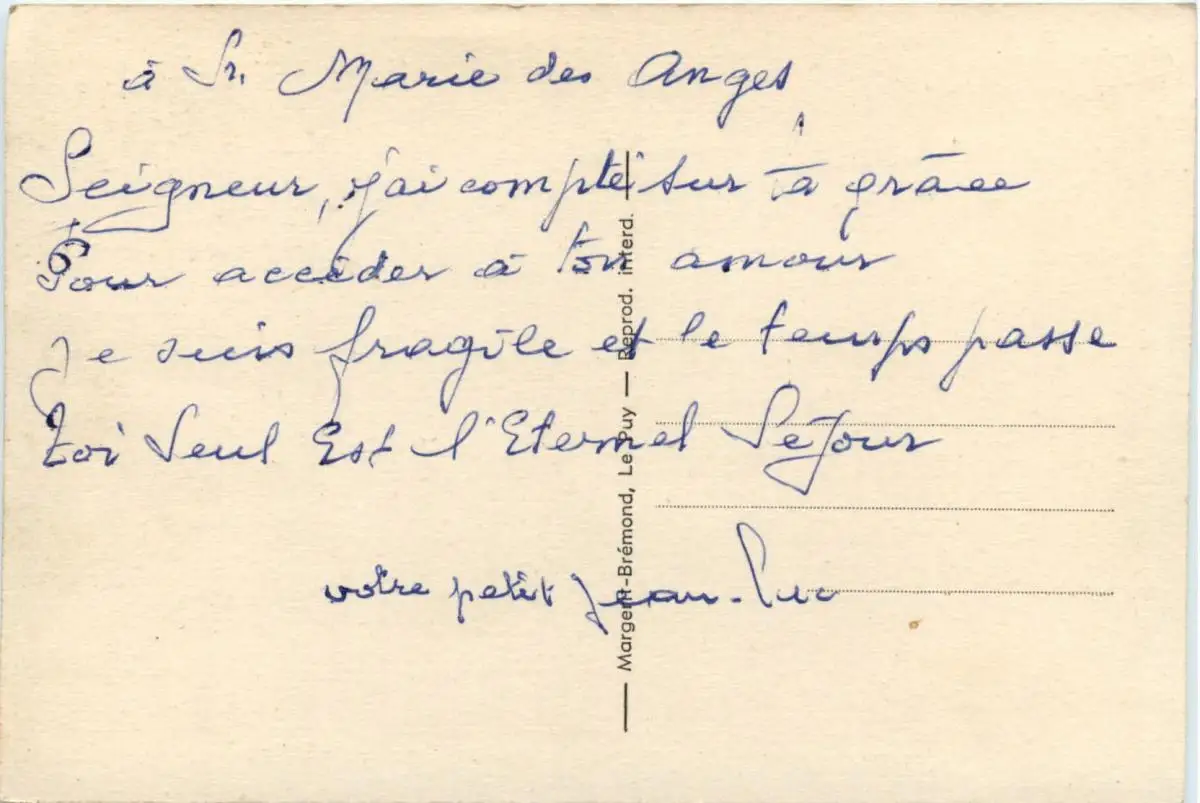 à Sr. Marie des Anges
Seigneur, j'ai compté sur ta grâce
Pour accéder à ton amour
Je suis fragile et le temps passe
Toi Seul Est l'Eternel Séjour
votre petit Jean-Luc
Margerit-Brémond, Le Puy — Reprod. interd.